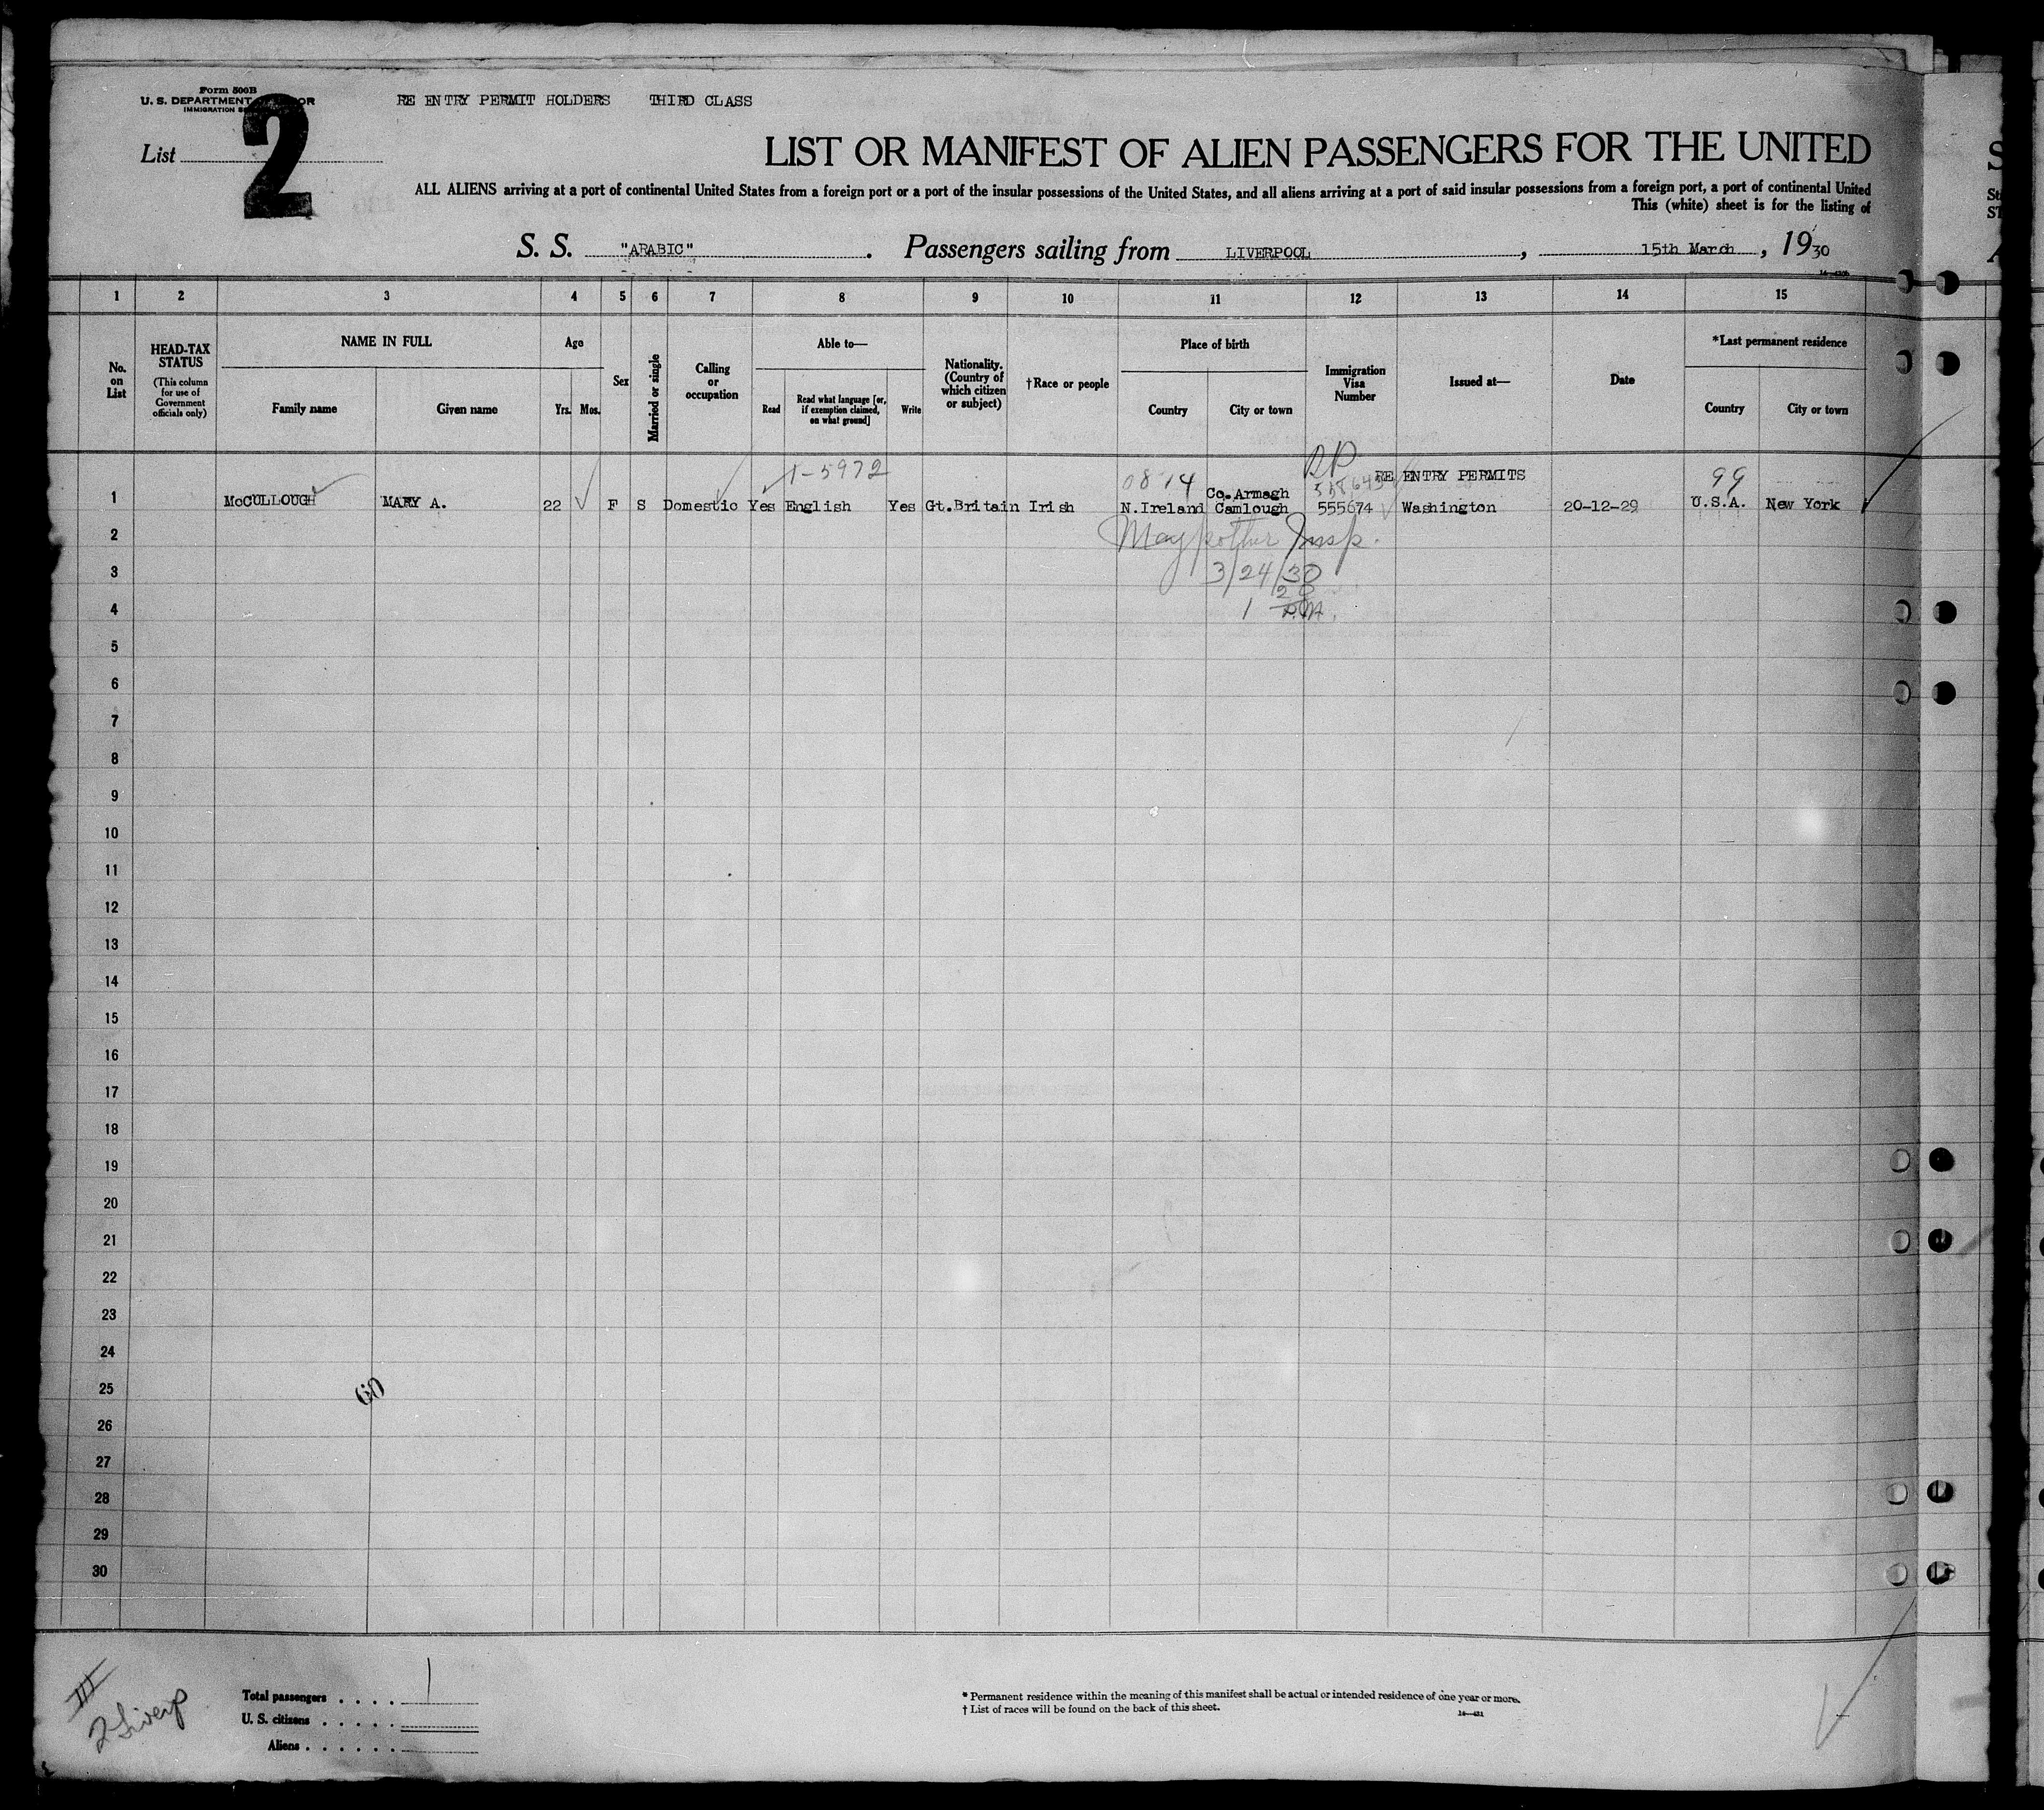 Form 500B
U. S. DEPARTMENT OR
IMMIGRATION
RE ENTRY PERMIT HOLDERS THIRD CLASS
List 2
LIST OR MANIFEST OF ALIEN PASSENGERS FOR THE UNITED
ALL ALIENS arriving at a port of continental United States from a foreign port or a port of the insular possessions of the United States, and all aliens arriving at a port of said insular possessions from a foreign port, a port of continental United
This (white) sheet is for the listing of
S. S. "ARABIC". Passengers sailing from LIVERPOOL, 15th March, 1930
1 2 3 4 5 6 7 8 9 10 11 12 13 14 15
No. on List
HEAD-TAX STATUS
(This column for use of Government officials only)
NAME IN FULL
Family name
Given name
Age
Yrs. Mos.
Sex
Married or single
Calling or occupation
Able to—
Read
Read what language [or, if exemption claimed, on what ground]
Write
Nationality. (Country of which citizen or subject)
†Race or people
Place of birth
Country
City or town
Immigration Visa Number
Issued at—
Date
*Last permanent residence
Country
City or town
1-5972 0814 RP RE ENTRY PERMITS 99
1 McCULLOUGH MARY A. 22 F S Domestic Yes English Yes Gt.Britain Irish N.Ireland Co.Armagh Camlough 555674 Washington 20-12-29 U.S.A. New York
2 Insp.
3 3/24/30
4 1
5
6
7
8
9
10
11
12
13
14
15
16
17
18
19
20
21
22
23
24
25
60
26
27
28
29
30
III
2 Liverp
Total passengers . . . . 1
U. S. citizens . . . . .
Aliens . . . . . .
* Permanent residence within the meaning of this manifest shall be actual or intended residence of one year or more.
† List of races will be found on the back of this sheet.
14—431